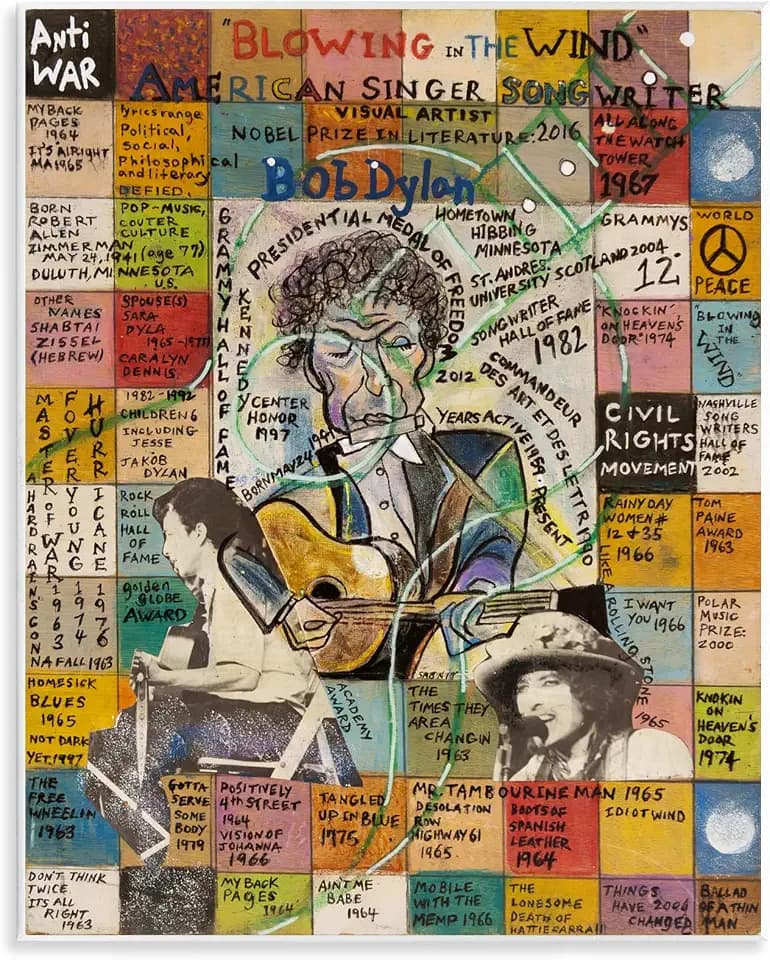 Anti
WAR
"BLOWING IN THE WIND"
AMERICAN SINGER SONG WRITER
VISUAL ARTIST
NOBEL PRIZE IN LITERATURE: 2016
Bob Dylan
MY BACK
PAGES
1964
IT'S ALRIGHT
MA 1965
lyrics range
Political,
Social,
Philosophical
and literary
DEFIED.
ALL ALONG
THE WATCH
TOWER
1967
BORN
ROBERT
ALLEN
ZIMMERMAN
MAY 24, 1941 (age 77)
DULUTH, MINNESOTA
U.S.
POP-MUSIC,
COUTER
CULTURE
GRAMMY HALL OF FAME
PRESIDENTIAL MEDAL OF FREEDOM
2012
HOMETOWN
HIBBING
MINNESOTA
ST. ANDRES.
UNIVERSITY SCOTLAND 2004
SONGWRITER
HALL OF FAME
1982
GRAMMYS
12
WORLD
PEACE
OTHER
NAMES
SHABTAI
ZISSEL
(HEBREW)
SPOUSE(S)
SARA
DYLA
1965-1977
CARALYN
DENNIS
1982-1992
KENNEDY
CENTER
HONOR
1997
BORN MAY 24 1941
COMMANDEUR
DES ART ET DES LETTR 1990
YEARS ACTIVE 1959-PRESENT
"KNOCKIN'
ON HEAVEN'S
DOOR" 1974
"BLOWING
IN
THE
WIND"
MASTER OF WAR
1963
FOVER YOUNG
1974
HURRICANE
1976
A HARD RAIN'S GONNA FALL 1963
CHILDREN 6
INCLUDING
JESSE
JAKOB
DYLAN
CIVIL
RIGHTS
MOVEMENT
NASHVILLE
SONG
WRITERS
HALL OF
FAME
2002
ROCK
ROLL
HALL
OF
FAME
RAINY DAY
WOMEN #
12 & 35
1966
TOM
PAINE
AWARD
1963
golden
GLOBE
AWARD
LIKE A ROLLING STONE
1965
I WANT
YOU 1966
POLAR
MUSIC
PRIZE:
2000
HOMESICK
BLUES
1965
NOT DARK
YET. 1997
ACADEMY
AWARD
THE
TIMES THEY
AREA
CHANGIN
1963
KNOKIN
ON
HEAVEN'S
DOOR
1974
THE
FREE
WHEELIN
1963
GOTTA
SERVE
SOME
BODY
1979
POSITIVELY
4th STREET
1964
VISION OF
JOHANNA
1966
TANGLED
UP IN BLUE
1775
MR. TAMBOURINE MAN 1965
DESOLATION
ROW
HIGHWAY 61
1965.
BOOTS OF
SPANISH
LEATHER
1964
IDIOT WIND
DON'T THINK
TWICE
ITS ALL
RIGHT
1963
MY BACK
PAGES
1964
AINT ME
BABE
1964
MOBILE
WITH THE
MEMP 1966
THE
LONESOME
DEATH OF
HATTIE CARRALL
THINGS
HAVE 2006
CHANGED
BALLAD
OF A THIN
MAN